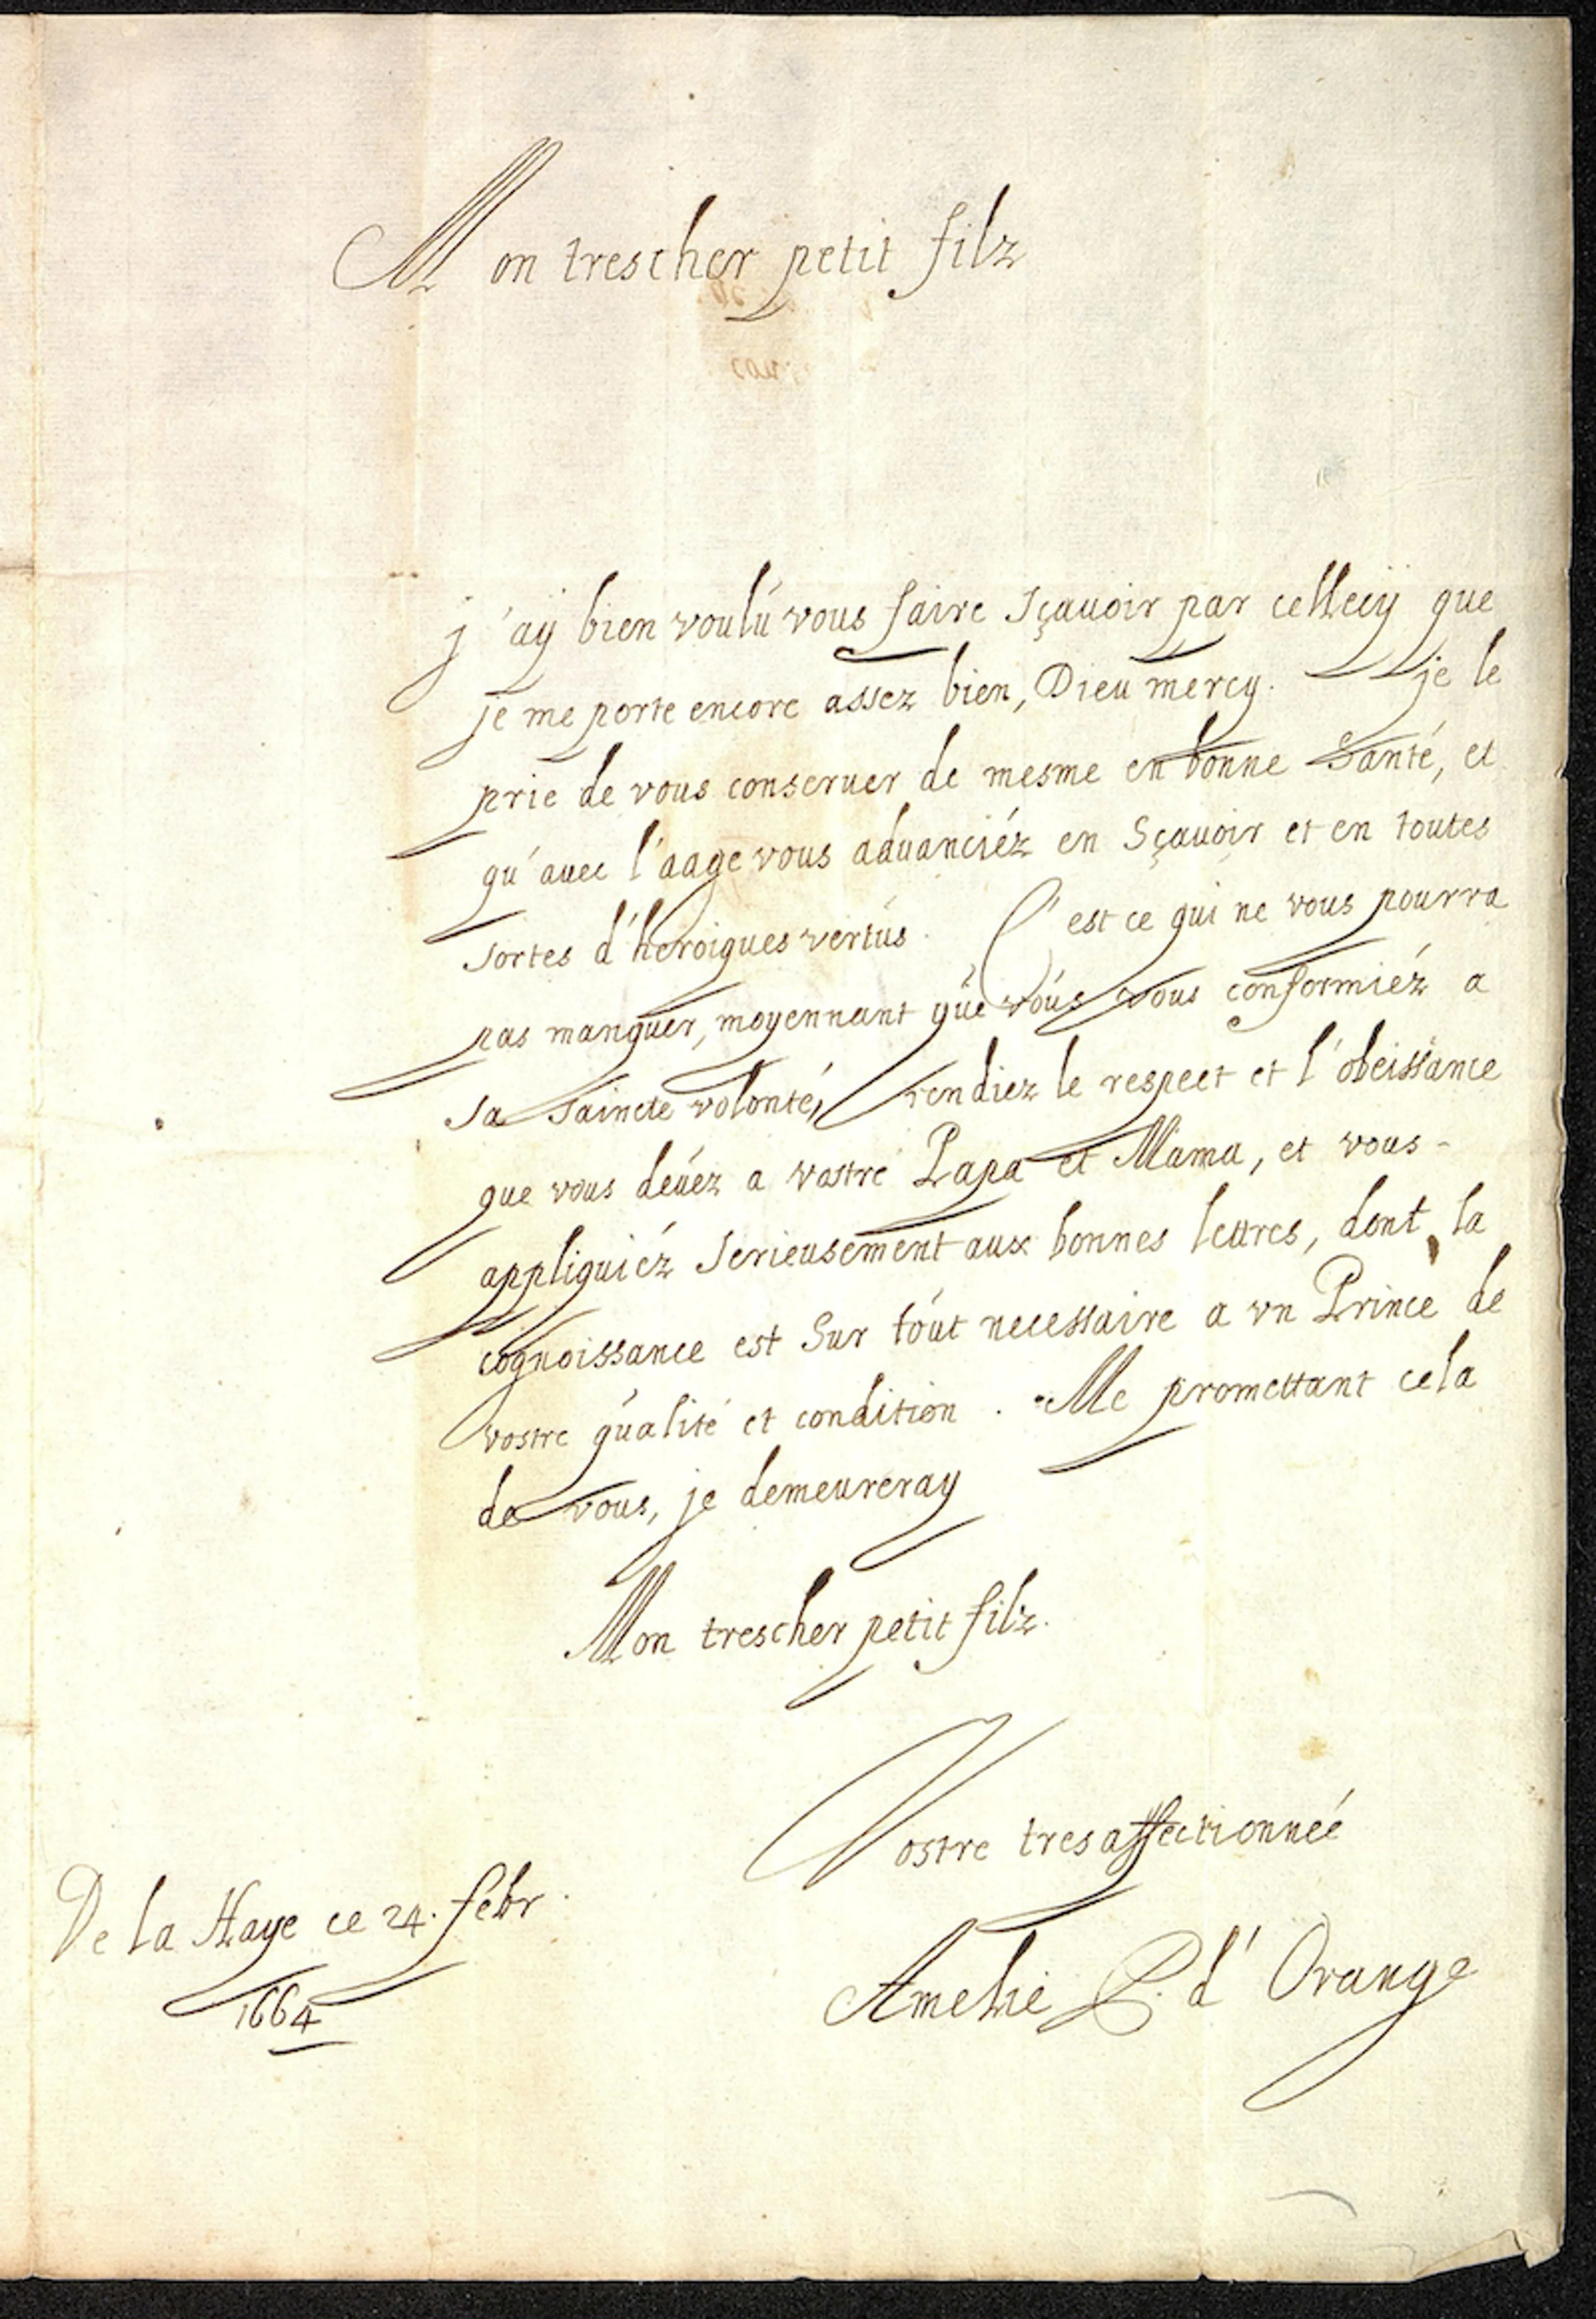 Mon trescher petit filz
j'aÿ bien voulú vous faire sçauoir par cellecÿ que
je me porte encore assez bien, Dieu mercy. je le
prie de vous conseruer de mesme en bonne Santé, et
qu'auec l'aage vous aduanciéz en Sçauoir et en toutes
sortes d'heroiques vertús. C'est ce qui ne vous pourra
pas manquer, moyennant qúe vóús vous conformiéz a
sa saincte volonté, rendiez le respect et l'obeissance
que vous deúéz a vostre Papa et Mama, et vous-
appliquiéz serieusement aux bonnes lettres, dont la
cognoissance est sur tóut necessaire a vn Prince de
vostre qúalité et condition. Me promettant cela
de vous, je demeureray
Mon trescher petit filz.
Vostre tresaffectionnéé
De la Haye ce 24. febr.
1664
Amelie P. d'Orange